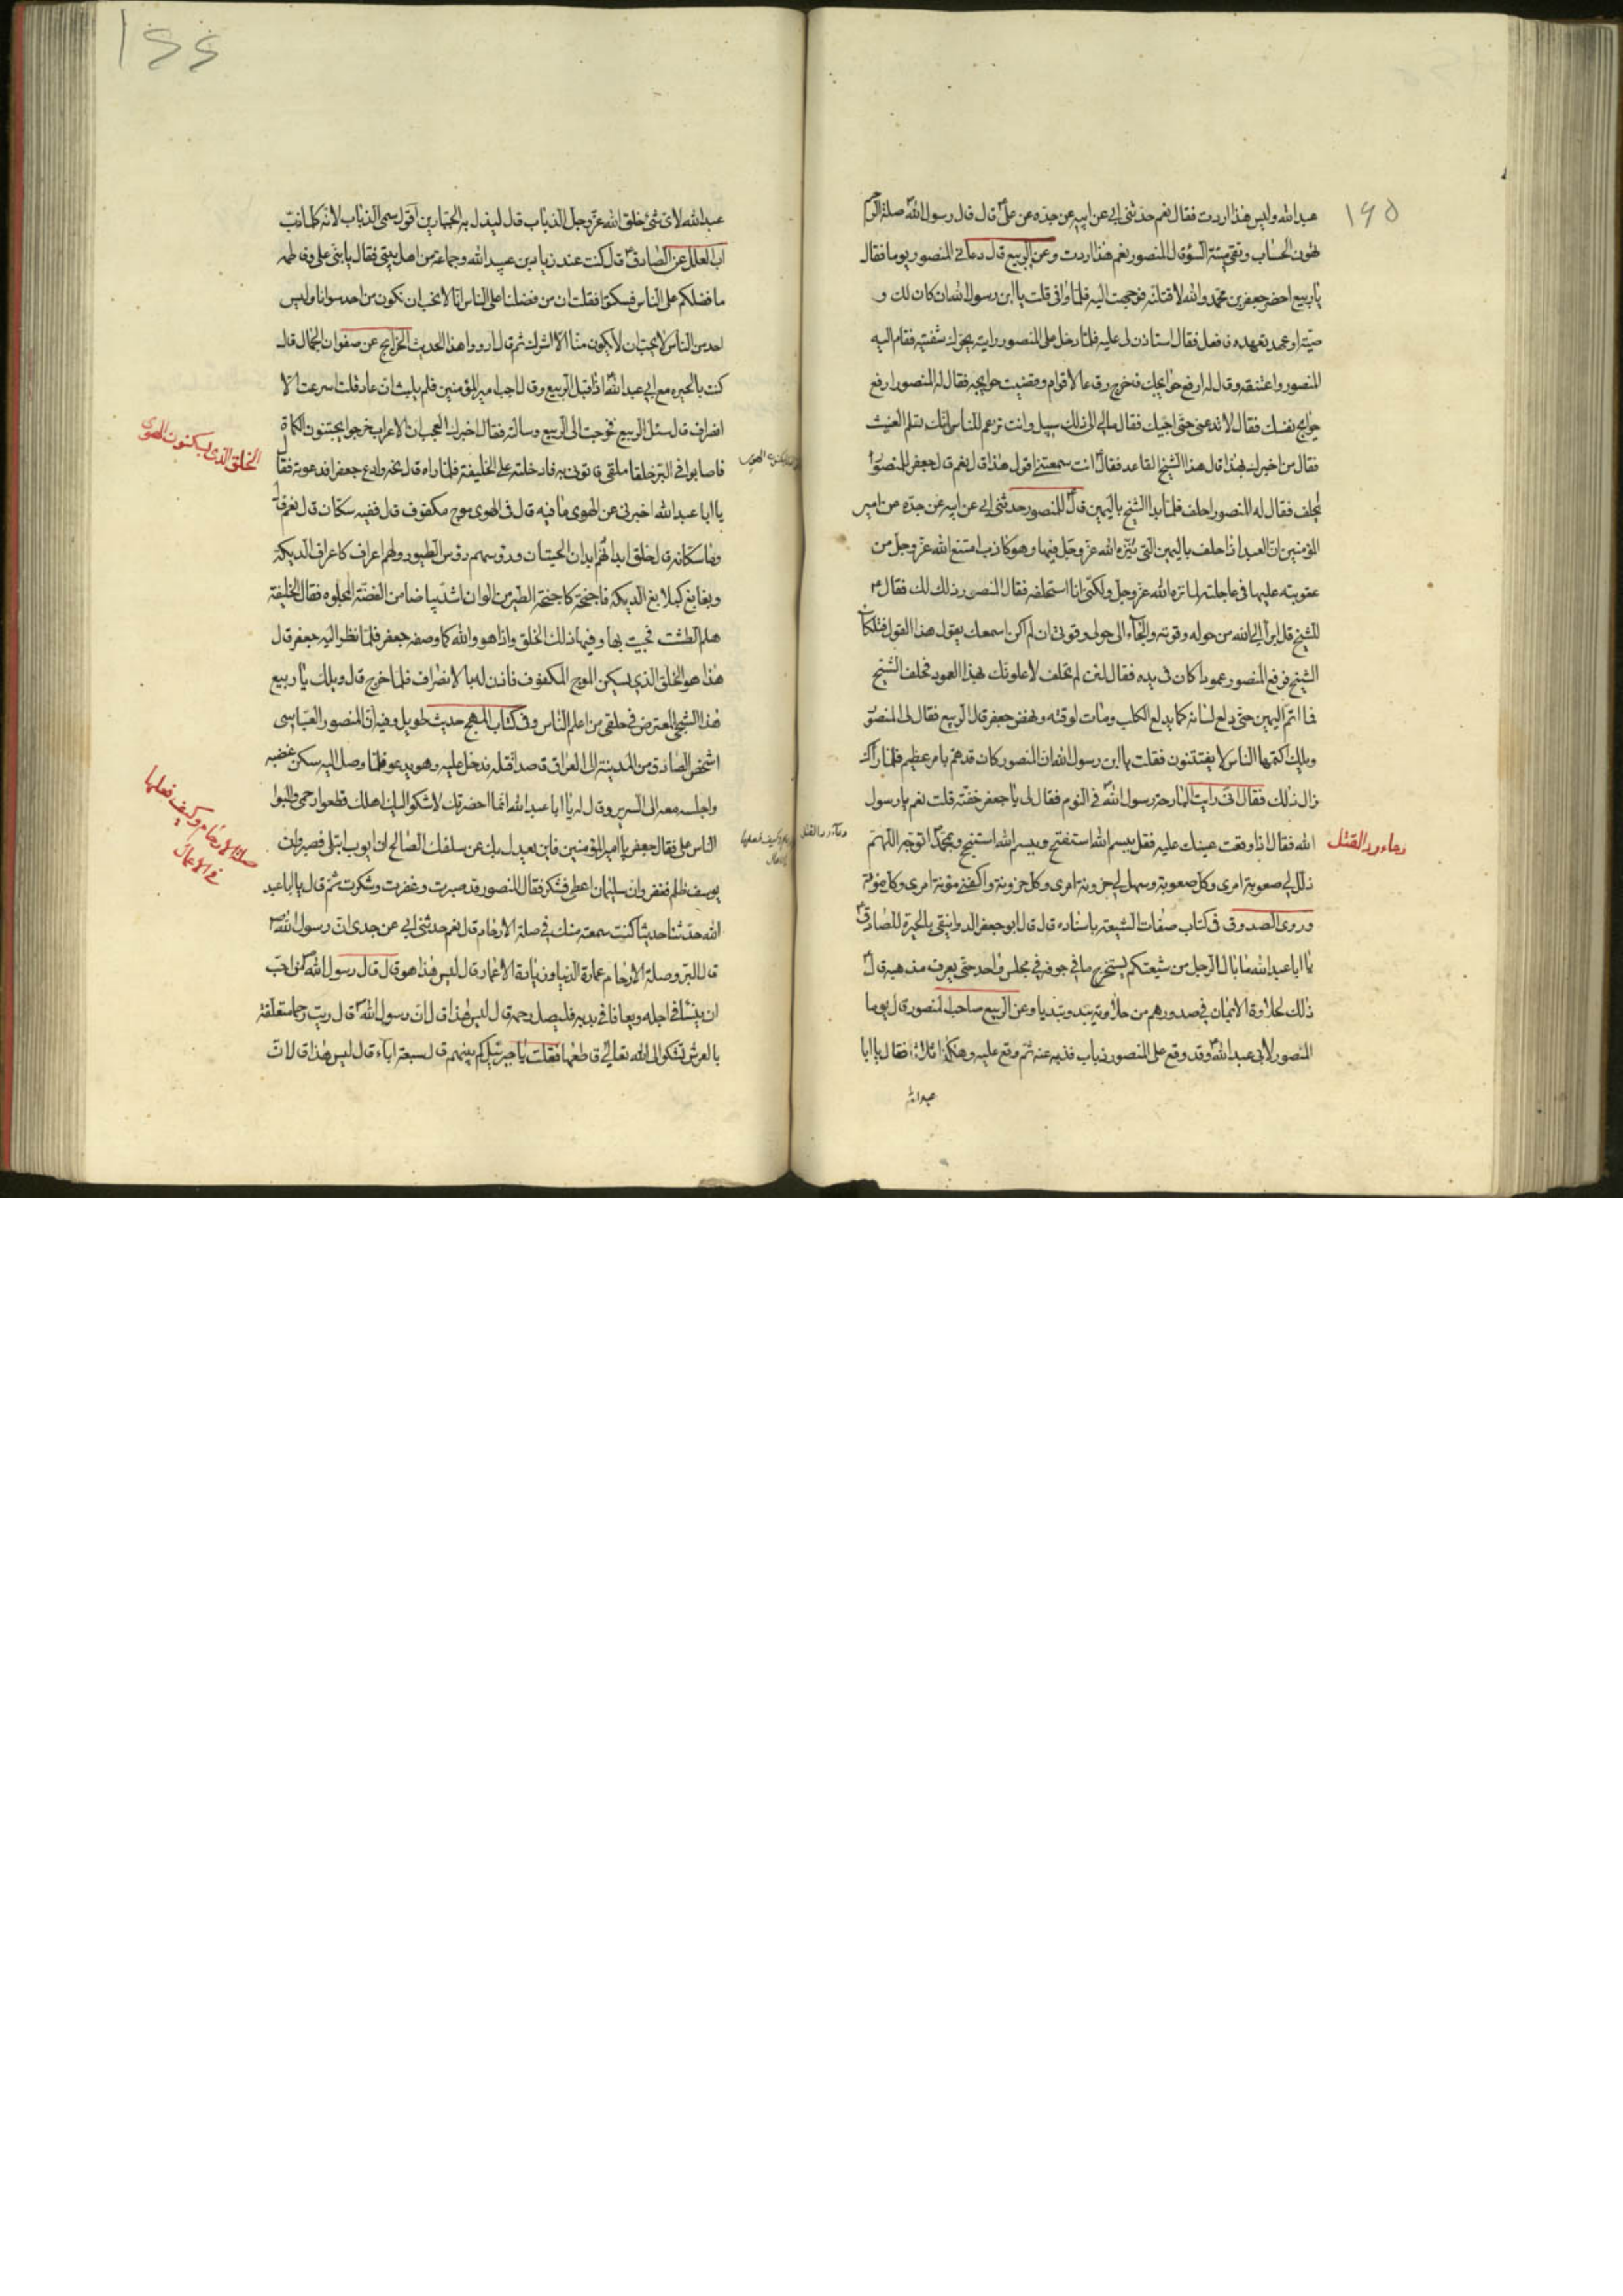 ١٩٥
عبدالله وليس هذا اردت فقال نعم حدثنى ابى عن ابيه عن جده عن على قال قال رسول الله صلة الرحم
تهون الحساب وتقى ميتة السوء قال المنصور نعم هذا اردت وعن الربيع قال دعانى المنصور يوما فقال
يا ربيع احضر جعفر بن محمد والله لاقتلنه فوجهت اليه فلما وافى قلت يا ابن رسول الله ان كان لك و
صية او عهد تعهده فافعل فقال استاذن لى عليه فلما دخل على المنصور رايته يحرك شفتيه فقام اليه
المنصور واعتنقه وقال له ارفع حوايجك فاخرج رقاعا لاقوام وقضيت حوايجه فقال له المنصور ارفع
حوايج نفسك فقال لا تدعنى حتى اجيك فقال مالى الى ذلك سبيل وانت تزعم للناس انك تعلم الغيب
فقال من اخبرك بهذا قال هذا الشيخ القاعد فقال انت سمعتنى اقول هذا قال نعم قال جعفر للمنصور ا
يحلف فقال له المنصور احلف فلما بدا الشيخ باليمين قال للمنصور حدثنى ابى عن ابيه عن جده عن امير
المؤمنين ان العبد اذا حلف باليمين التى ينزه الله عز وجل فيها وهو كاذب امتنع الله عز وجل من
عقوبته عليها فى عاجلته لما نزه الله عز وجل ولكنى انا استحلفه فقال المنصور ذلك لك فقال
للشيخ قل ابرا الى الله من حوله وقوته والجاء الى حولى وقوتى ان لم اكن اسمعك يقول هذا القول فتلكا
الشيخ فرفع المنصور عمودا كان فى يده فقال لئن لم تحلف لاعلونك بهذا العمود فحلف الشيخ
فما اتم اليمين حتى دلع لسانه كما يدلع الكلب ومات لوقته ونهض جعفر قال الربيع فقال لى المنصور
ويلك اكتمها الناس لا يفتتنون فقلت يا ابن رسول الله ان المنصور كان قد هم بامر عظيم فلما راك
زال ذلك فقال انى رايت البارحة رسول الله فى النوم فقال لى يا جعفر خفته قلت نعم يا رسول
الله فقال اذا وقعت عينك عليه فقل بسم الله استفتح وبسم الله استنجح وبمحمد اتوجه اللهم
دعاء رد القتل
ذلل لى صعوبة امرى وكل صعوبة وسهل لى حزونة امرى وكل حزونة واكفنى مؤنة امرى وكل مؤنة
وروى الصدوق فى كتاب صفات الشيعة باسناده قال قال ابو جعفر الدوانيقى بالحيرة للصادق
يا ابا عبدالله ما بال الرجل من شيعتكم يستخرج ما فى جوفه فى مجلس واحد حتى يعرف مذهبه قال
ذلك لحلاوة الايمان فى صدورهم من حلاوته يبدونه تبديا وعن الربيع صاحب المنصور قال يوما
المنصور لابى عبدالله وقد وقع على المنصور ذباب فذبه عنه ثم وقع عليه وهكذا ثلاثا فقال يا ابا
عبدالله
عبدالله لاى شئ خلق الله عز وجل الذباب قال ليذل به الجبارين اقول سمى الذباب لانه كلما ذب
اب العلل عن الصادق قال كنت عند زياد بن عبيد الله وجماعة من اهل بيتى فقال يا بنى على وفاطمه
ما فضلكم على الناس فسكتوا فقلت ان من فضلنا على الناس انا لا نحب ان نكون من احد سوانا وليس
احد من الناس لا يحب ان لا يكون منا الا اشرك ثم قال ارووا هذا الحديث الخرايج عن صفوان الجمال قال
كنت بالحيره مع ابى عبدالله اذ اقبل الربيع وقال اجب امير المؤمنين فلم يلبث ان عاد قلت اسرعت الا
نصراف قال سئل الربيع فخرجت الى الربيع وسالته فقال اخبرك العجب ان الاعراب خرجوا يجتنون الكماة
فاصابوا فى البر خلقا ملقى فاتونى به فادخلته على الخليفة فلما راه قال نحه وادع جعفرا فدعوته فقال
الخلق الذى يسكنون الهوى
يا ابا عبدالله اخبرنى عن الهوى ما فيه قال فى الهوى موج مكفوف قال ففيه سكان قال نعم قال
وما سكانه قال خلق ابدانهم ابدان الحيتان ورؤسهم رؤس الطيور ولهم اعراف كاعراف الديكة
ونغانغ كنغانغ الديكه فاجنحة كاجنحة الطير من الوان اشد بياضا من الفضة المجلوه فقال الخليفة
هلم الطشت فجيت بها وفيها ذلك الخلق واذا هو والله كما وصفه جعفر فلما نظر اليه جعفر قال
هذا هو الخلق الذى يسكن الموج المكفوف فاذن له بالانصراف فلما خرج قال ويلك يا ربيع
هذا الشجى المعترض فى حلقى من اعلم الناس وفى كتاب المهج حديث طويل وفيه ان المنصور العباسى
اشخص الصادق من المدينة الى العراق قاصدا قتله فدخل عليه وهو يدعو فلما وصل اليه سكن غضبه
واجلسه معه الى السرير وقال له يا ابا عبدالله انما احضرتك لاشكو اليك اهلك قطعوا رحمى والبوا
الناس على فقال جعفر يا امير المؤمنين فاين يعدل بك عن سلفك الصالح ان ايوب ابتلى فصبر وان
صلة الارحام وكيف فعلها
فى الاعمال
يوسف ظلم فغفر وان سليمان اعطى فشكر فقال المنصور قد صبرت وغفرت وشكرت ثم قال يا ابا عبد
الله حدثنا حديثا كنت سمعته منك فى صلة الارحام قال نعم حدثنى ابى عن جدى ان رسول الله
قال البر وصلة الارحام عمارة الدنيا وزيادة الاعمار قال ليس هذا هو قال قال رسول الله من احب
ان ينسا فى اجله ويعافا فى بدنه فليصل رحمه قال ليس هذا قال ان رسول الله قال رايت رحما متعلقة
بالعرش تشكو الى الله تعالى قاطعها فقلت يا جبرئيل كم بينهم قال سبعة اباء قال ليس هذا قال ان